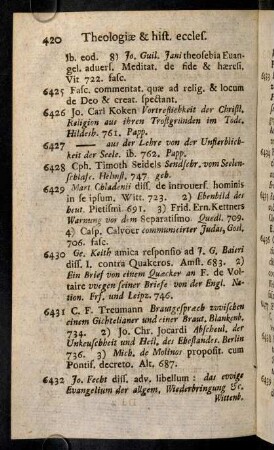 420 Theologiæ & hist. eccles.
ib. eod. 8) Jo. Guil. Jani theosebia Euan-
gel. adverf. Meditat. de fide & hæresi.
Vit. 722. fasc.
6425 Fasc. commentat. quæ ad relig. & locum
de Deo & creat. spectant.
6426 Jo. Carl Koken's Vortreflichkeit der Christl.
Religion aus ihren Trostgründen im Tode.
Hildesh. 761. Papp.
6427 —— aus der Lehre von der Unsterblich-
keit der Seele. ib. 762. Papp.
6428 Cph. Timoth Seidels Sendschr. vom Seelen-
schlafe. Helmst. 747. geb.
6429 Mart Chladenii diss. de introvers. hominis
in se ipsum, Witt. 723. 2) Ebenbild des
heut. Pietismi. 691. 3) Frid. Ern. Kettners
Warnung vor dem Separatismo. Quedl. 709.
4) Casp. Calvoer communicirter Judas, Gosl.
706. fasc.
6430 Ge. Keith amica responsio ad J. G. Baieri
diss. I. contra Quakeros. Amst. 683. 2)
Ein Brief von einem Quæcker an F. de Vol-
taire wegen seiner Briefe von der Engl. Na-
tion. Frf. und Leipz. 746.
6431 C. F. Treumann Brautgespræch zwischen
einem Gichtelianer und einer Braut. Blankenb.
734. 2) Jo. Chr. Jocardi Abscheul. der
Unkeuschheit und Heil. des Ehestandes. Berlin
736. 3) Mich. de Molinos proposit. cum
Pontif. decreto. Alt. 687.
6432 Jo. Fecht diss. adv. libellum: das ewige
Evangelium der allgem. Wiederbringung &c.
Wittenb.